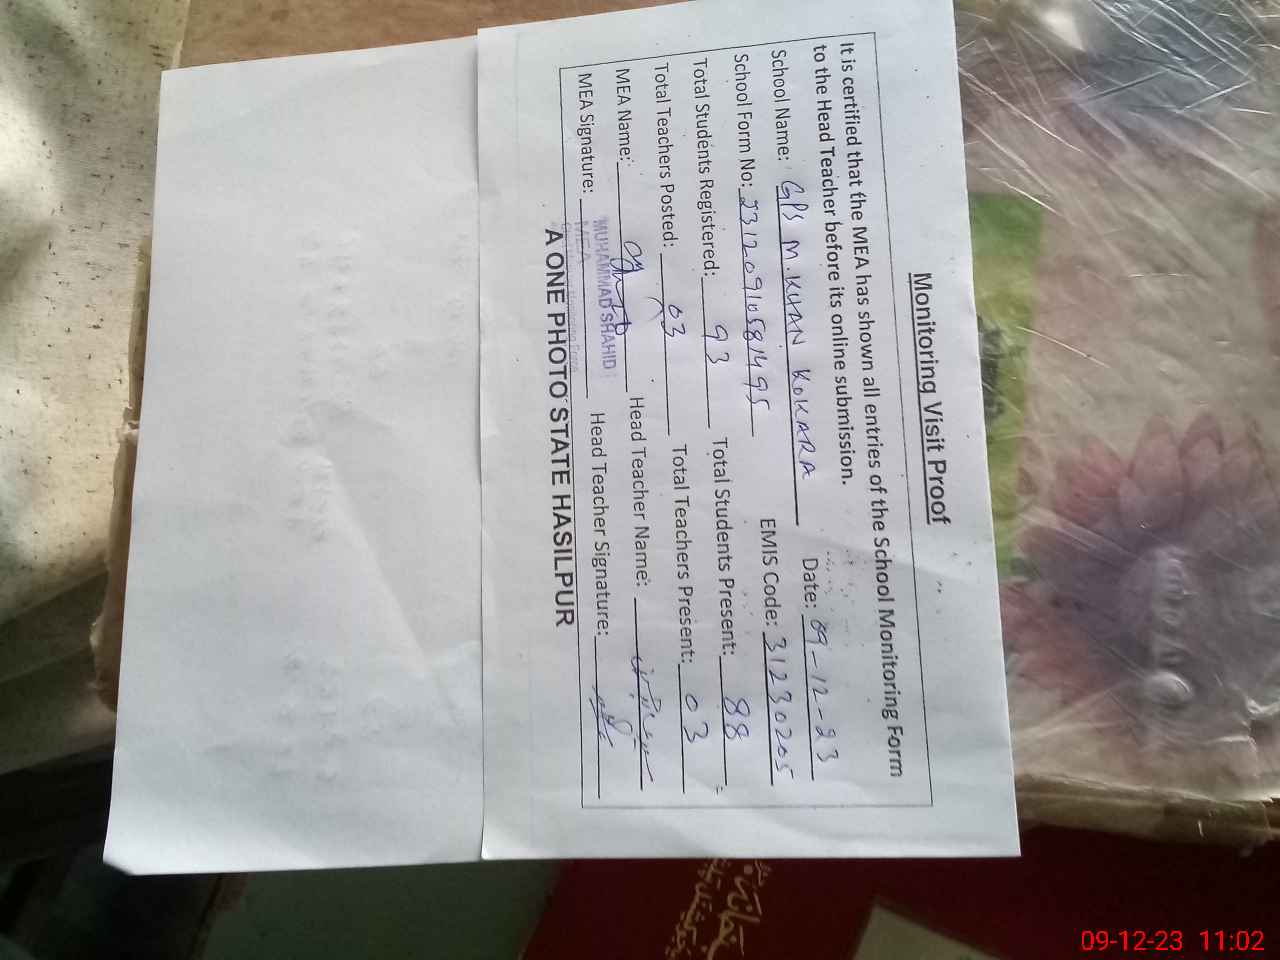 Monitoring Visit Proof
It is certified that the MEA has shown all entries of the School Monitoring Form
to the Head Teacher before its online submission.
School Name: GPS M.KHAN KOKARA Date: 09-12-23
School Form No: 23120910581495 EMIS Code: 31230205
Total Students Registered: 93 Total Students Present: 88
Total Teachers Posted: 03 Total Teachers Present: 03
MEA Name: Head Teacher Name:
MEA Signature: Head Teacher Signature:
MUHAMMAD SHAHID
MEA
A ONE PHOTO STATE HASILPUR
09-12-23 11:02